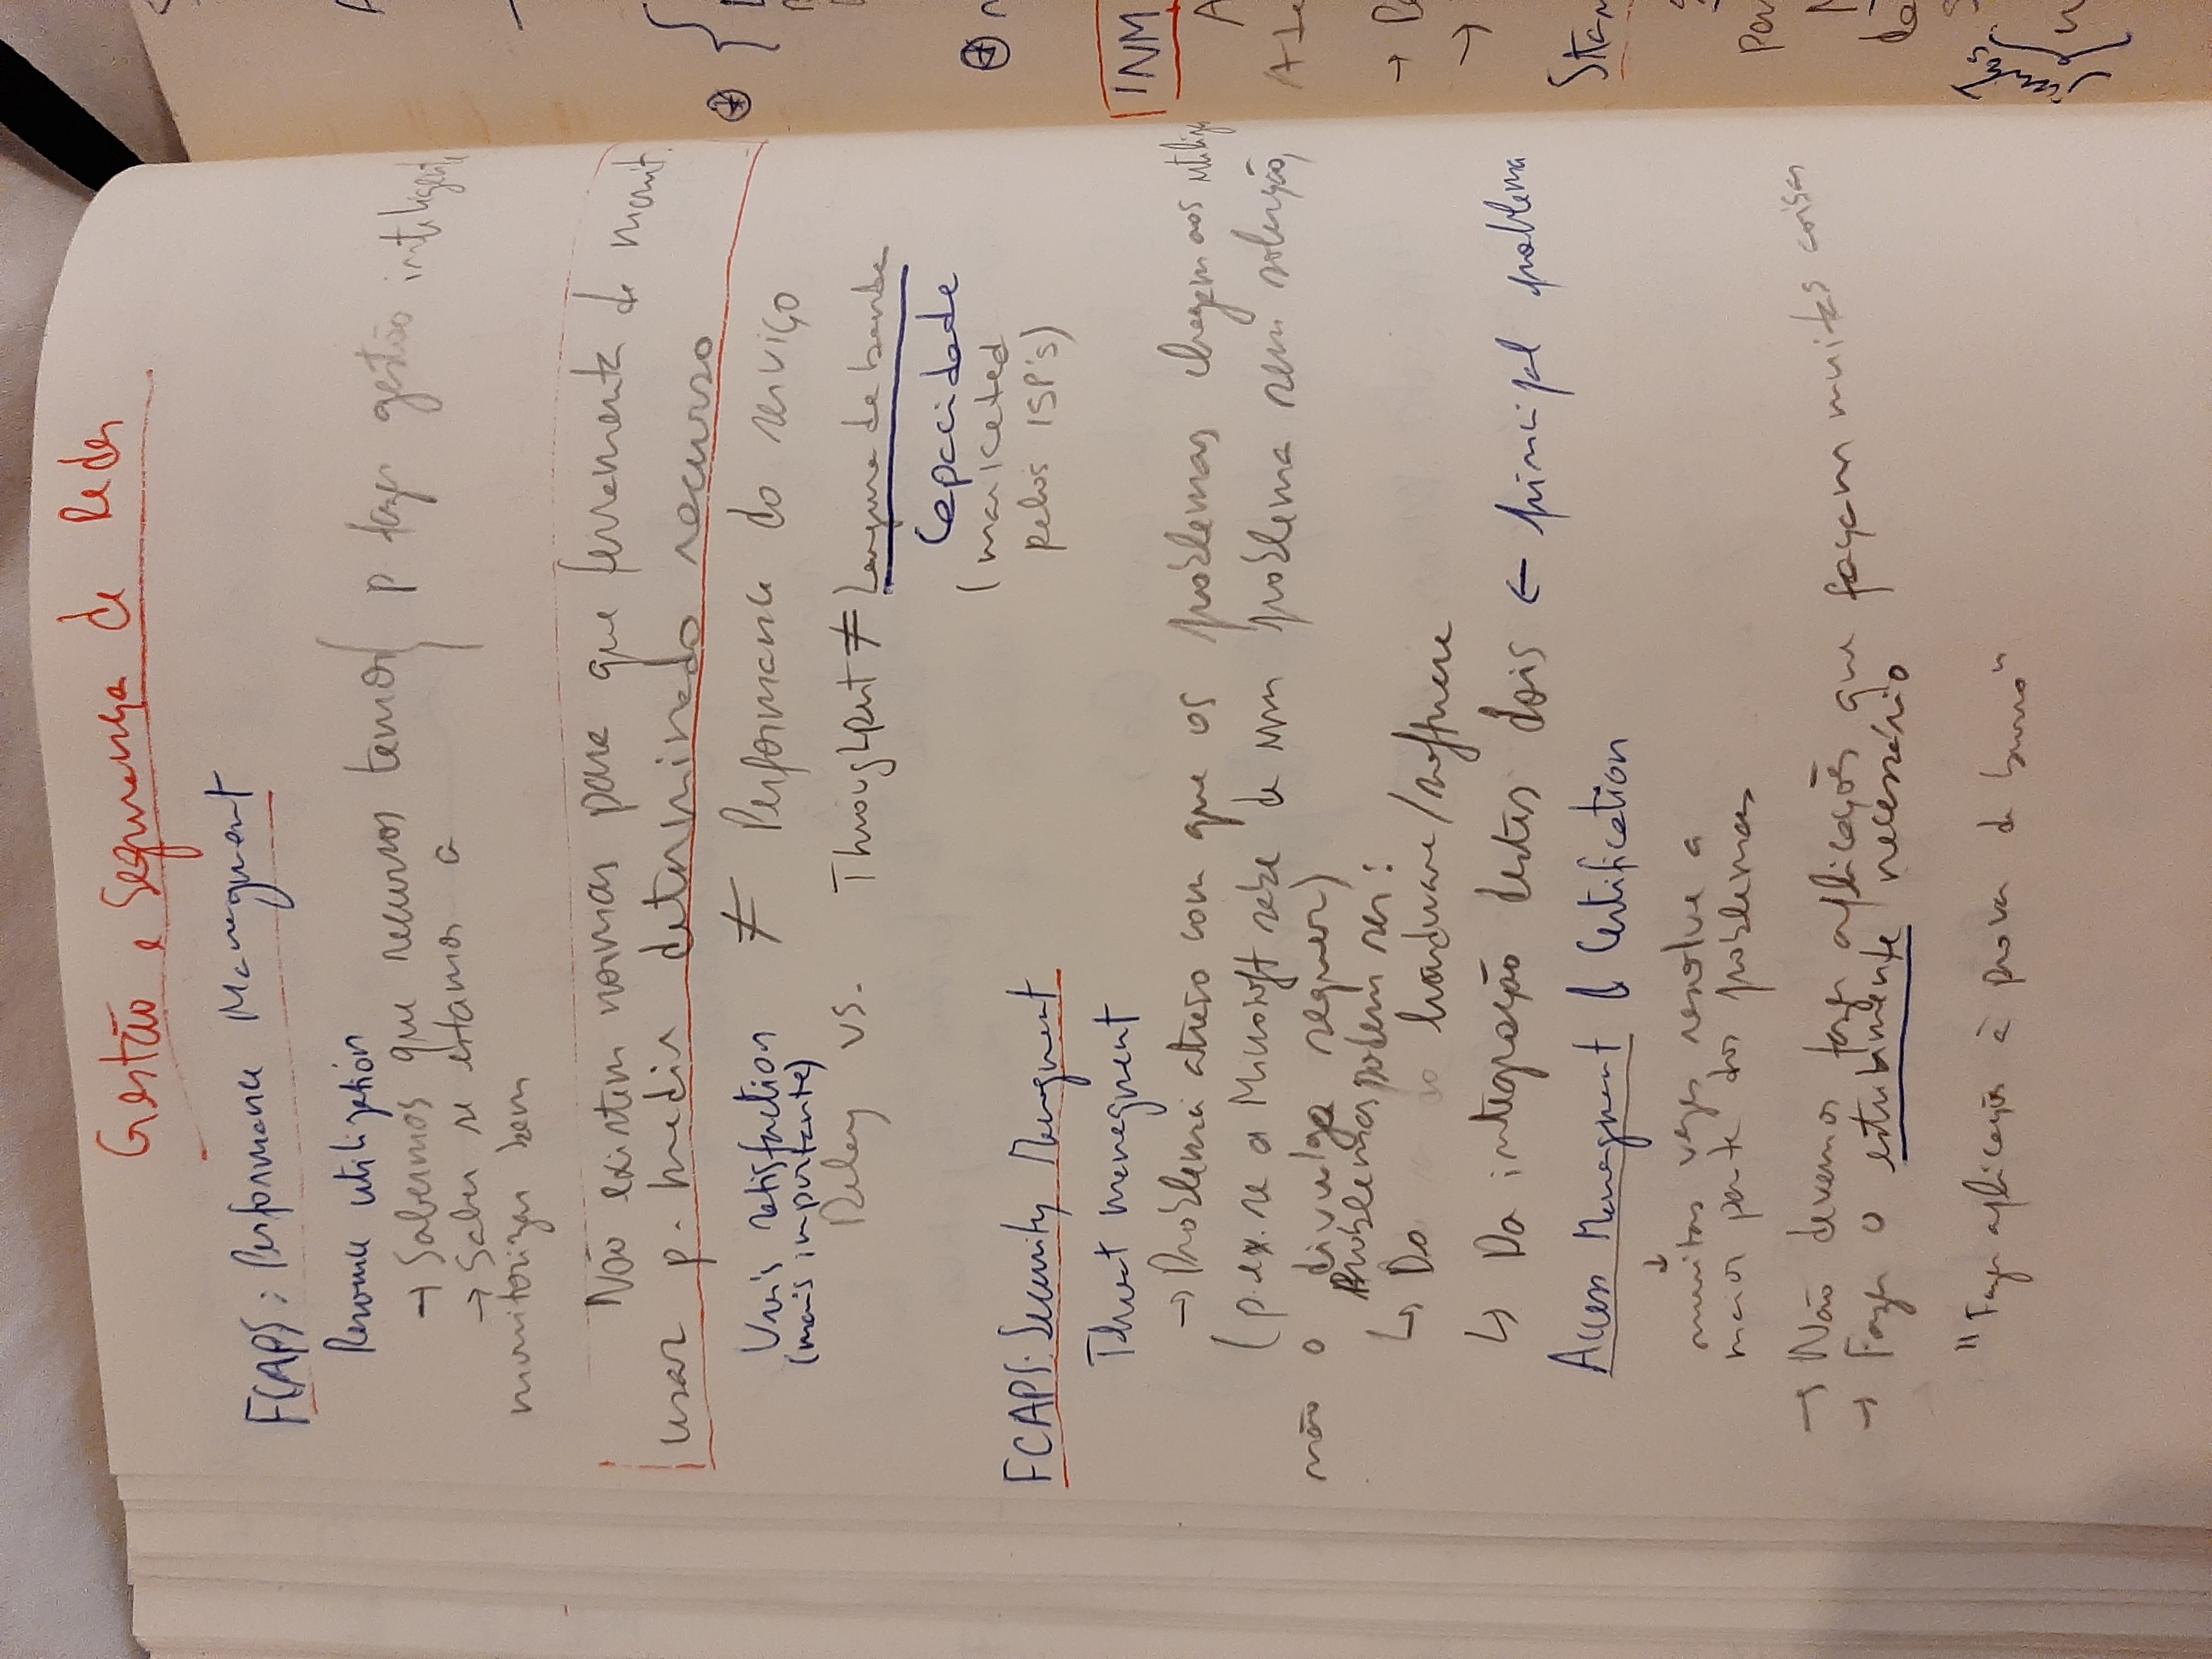 Gestão e Segurança de Redes
FCAPS: Performance Managment
Resource utilization
→ Sabermos que recursos temos } p fazer gestão inteligente
→ Saber se estamos a
monitorizar bem
Não existem normas para que ferramenta de monit.
usar p. medir determinado recurso
User's satisfaction ≠ Performance do serviço
(mais importante)
Delay vs. Throughput ≠ Largura de banda
Capacidade
(marketed
pelos ISP's)
FCAPS: Security Managment
Threat managment
→ Problema atraso com que os problemas chegam aos utiliz
(p.ex. se a Microsoft sabe de um problema sem solução,
não o divulga sequer)
Problemas podem ser:
↳ Do hardware/software
↳ Da integração destes dois ← principal problema
Access Managment & Certification
↓
muitas vezes resolve a
maior parte dos problemas
→ Não devemos fazer aplicações que façam muitas coisas
→ Fazer o estritamente necessário
"Fazer aplicações à prova de burro"
INM
A
→
→
Stan
juntos